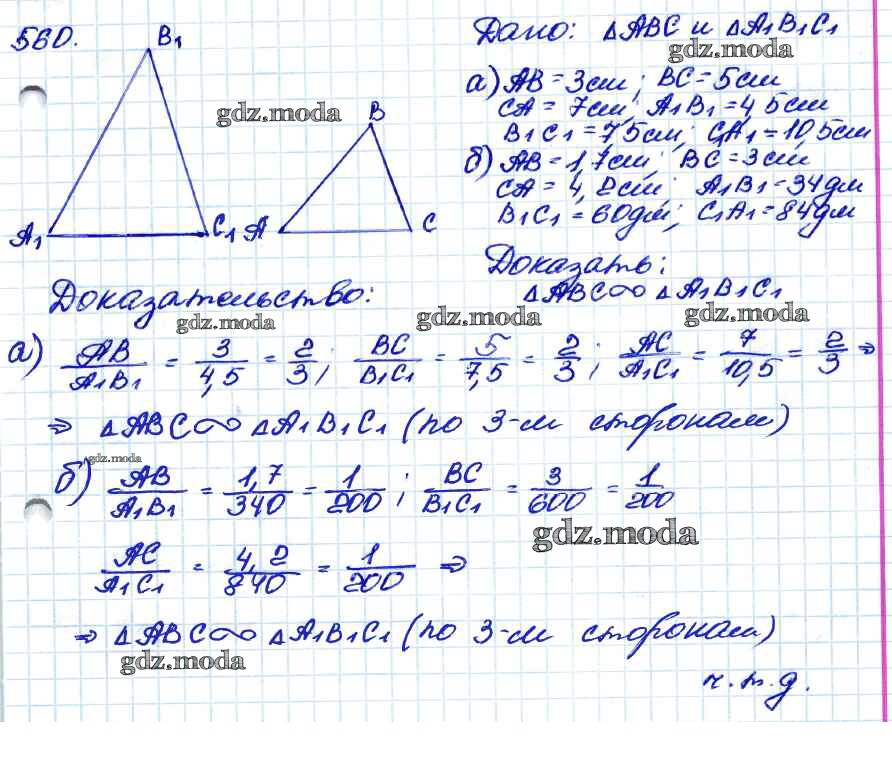 560.
B₁
Дано: △ABC и △A₁B₁C₁
gdz.moda
а) AB = 3см; BC = 5см
CA = 7см; A₁B₁ = 4,5см
B₁C₁ = 7,5см; C₁A₁ = 10,5см
б) AB = 1,7см; BC = 3см
CA = 4,2см; A₁B₁ = 34дм
B₁C₁ = 60дм; C₁A₁ = 84дм
gdz.moda
B
A₁ C₁ A C
Доказать:
△ABC∾△A₁B₁C₁
Доказательство:
gdz.moda gdz.moda gdz.moda
а) AB/A₁B₁ = 3/4,5 = 2/3; BC/B₁C₁ = 5/7,5 = 2/3; AC/A₁C₁ = 7/10,5 = 2/3 ⇒
⇒ △ABC∾△A₁B₁C₁ (по 3-м сторонам)
gdz.moda
б) AB/A₁B₁ = 1,7/340 = 1/200; BC/B₁C₁ = 3/600 = 1/200
gdz.moda
AC/A₁C₁ = 4,2/840 = 1/200 ⇒
⇒ △ABC∾△A₁B₁C₁ (по 3-м сторонам)
gdz.moda
ч.т.д.